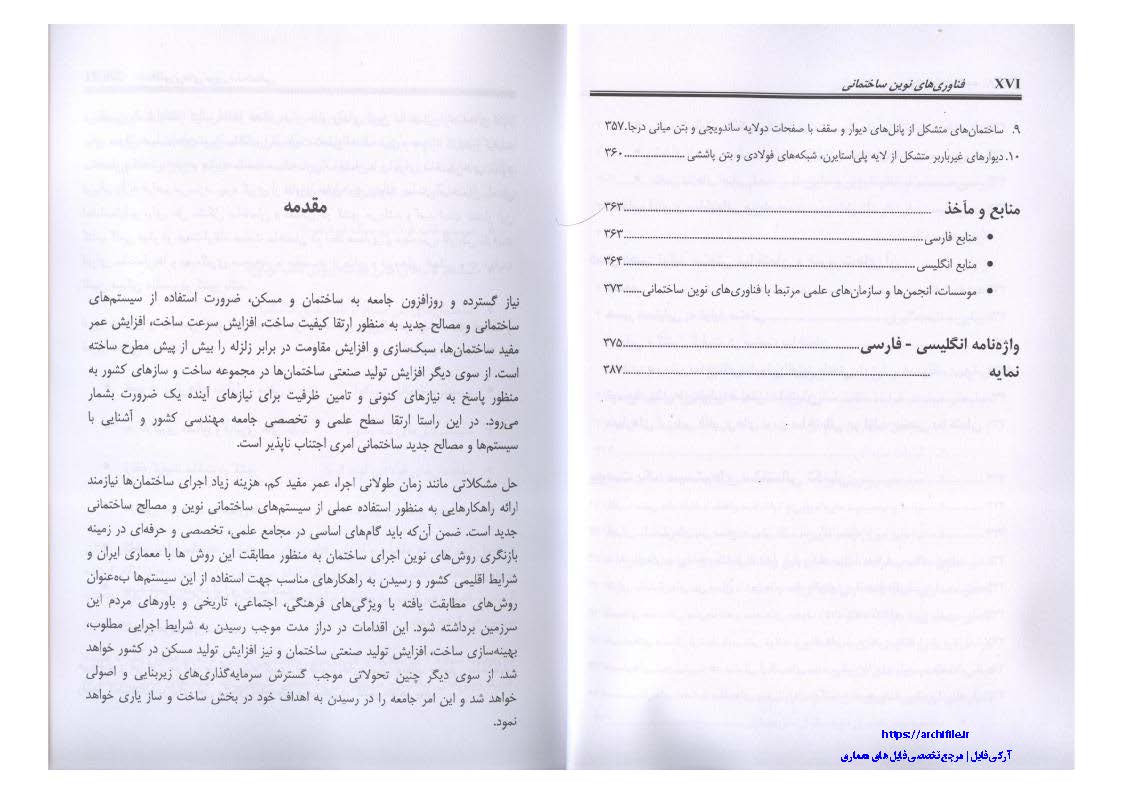 XVI فناوری‌های نوین ساختمانی
۹. ساختمان‌های متشکل از پانل‌های دیوار و سقف با صفحات دولایه ساندویچی و بتن میانی درجا.۳۵۷
۱۰. دیوارهای غیرباربر متشکل از لایه پلی‌استایرن، شبکه‌های فولادی و بتن پاششی ....................۳۶۰
منابع و مآخذ ....................۳۶۳
• منابع فارسی....................۳۶۳
• منابع انگلیسی....................۳۶۴
• موسسات، انجمن‌ها و سازمان‌های علمی مرتبط با فناوری‌های نوین ساختمانی.......۳۷۳
واژه‌نامه انگلیسی - فارسی....................۳۷۵
نمایه ....................۳۸۷
مقدمه
نیاز گسترده و روزافزون جامعه به ساختمان و مسکن، ضرورت استفاده از سیستم‌های
ساختمانی و مصالح جدید به منظور ارتقا کیفیت ساخت، افزایش سرعت ساخت، افزایش عمر
مفید ساختمان‌ها، سبک‌سازی و افزایش مقاومت در برابر زلزله را بیش از پیش مطرح ساخته
است. از سوی دیگر افزایش تولید صنعتی ساختمان‌ها در مجموعه ساخت و سازهای کشور به
منظور پاسخ به نیازهای کنونی و تامین ظرفیت برای نیازهای آینده یک ضرورت بشمار
می‌رود. در این راستا ارتقا سطح علمی و تخصصی جامعه مهندسی کشور و آشنایی با
سیستم‌ها و مصالح جدید ساختمانی امری اجتناب ناپذیر است.
حل مشکلاتی مانند زمان طولانی اجرا، عمر مفید کم، هزینه زیاد اجرای ساختمان‌ها نیازمند
ارائه راهکارهایی به منظور استفاده عملی از سیستم‌های ساختمانی نوین و مصالح ساختمانی
جدید است. ضمن آن‌که باید گام‌های اساسی در مجامع علمی، تخصصی و حرفه‌ای در زمینه
بازنگری روش‌های نوین اجرای ساختمان به منظور مطابقت این روش ها با معماری ایران و
شرایط اقلیمی کشور و رسیدن به راهکارهای مناسب جهت استفاده از این سیستم‌ها به‌عنوان
روش‌های مطابقت یافته با ویژگی‌های فرهنگی، اجتماعی، تاریخی و باورهای مردم این
سرزمین برداشته شود. این اقدامات در دراز مدت موجب رسیدن به شرایط اجرایی مطلوب،
بهینه‌سازی ساخت، افزایش تولید صنعتی ساختمان و نیز افزایش تولید مسکن در کشور خواهد
شد. از سوی دیگر چنین تحولاتی موجب گسترش سرمایه‌گذاری‌های زیربنایی و اصولی
خواهد شد و این امر جامعه را در رسیدن به اهداف خود در بخش ساخت و ساز یاری خواهد
نمود.
https://archifile.ir
آرکی فایل | مرجع تخصصی فایل های معماری